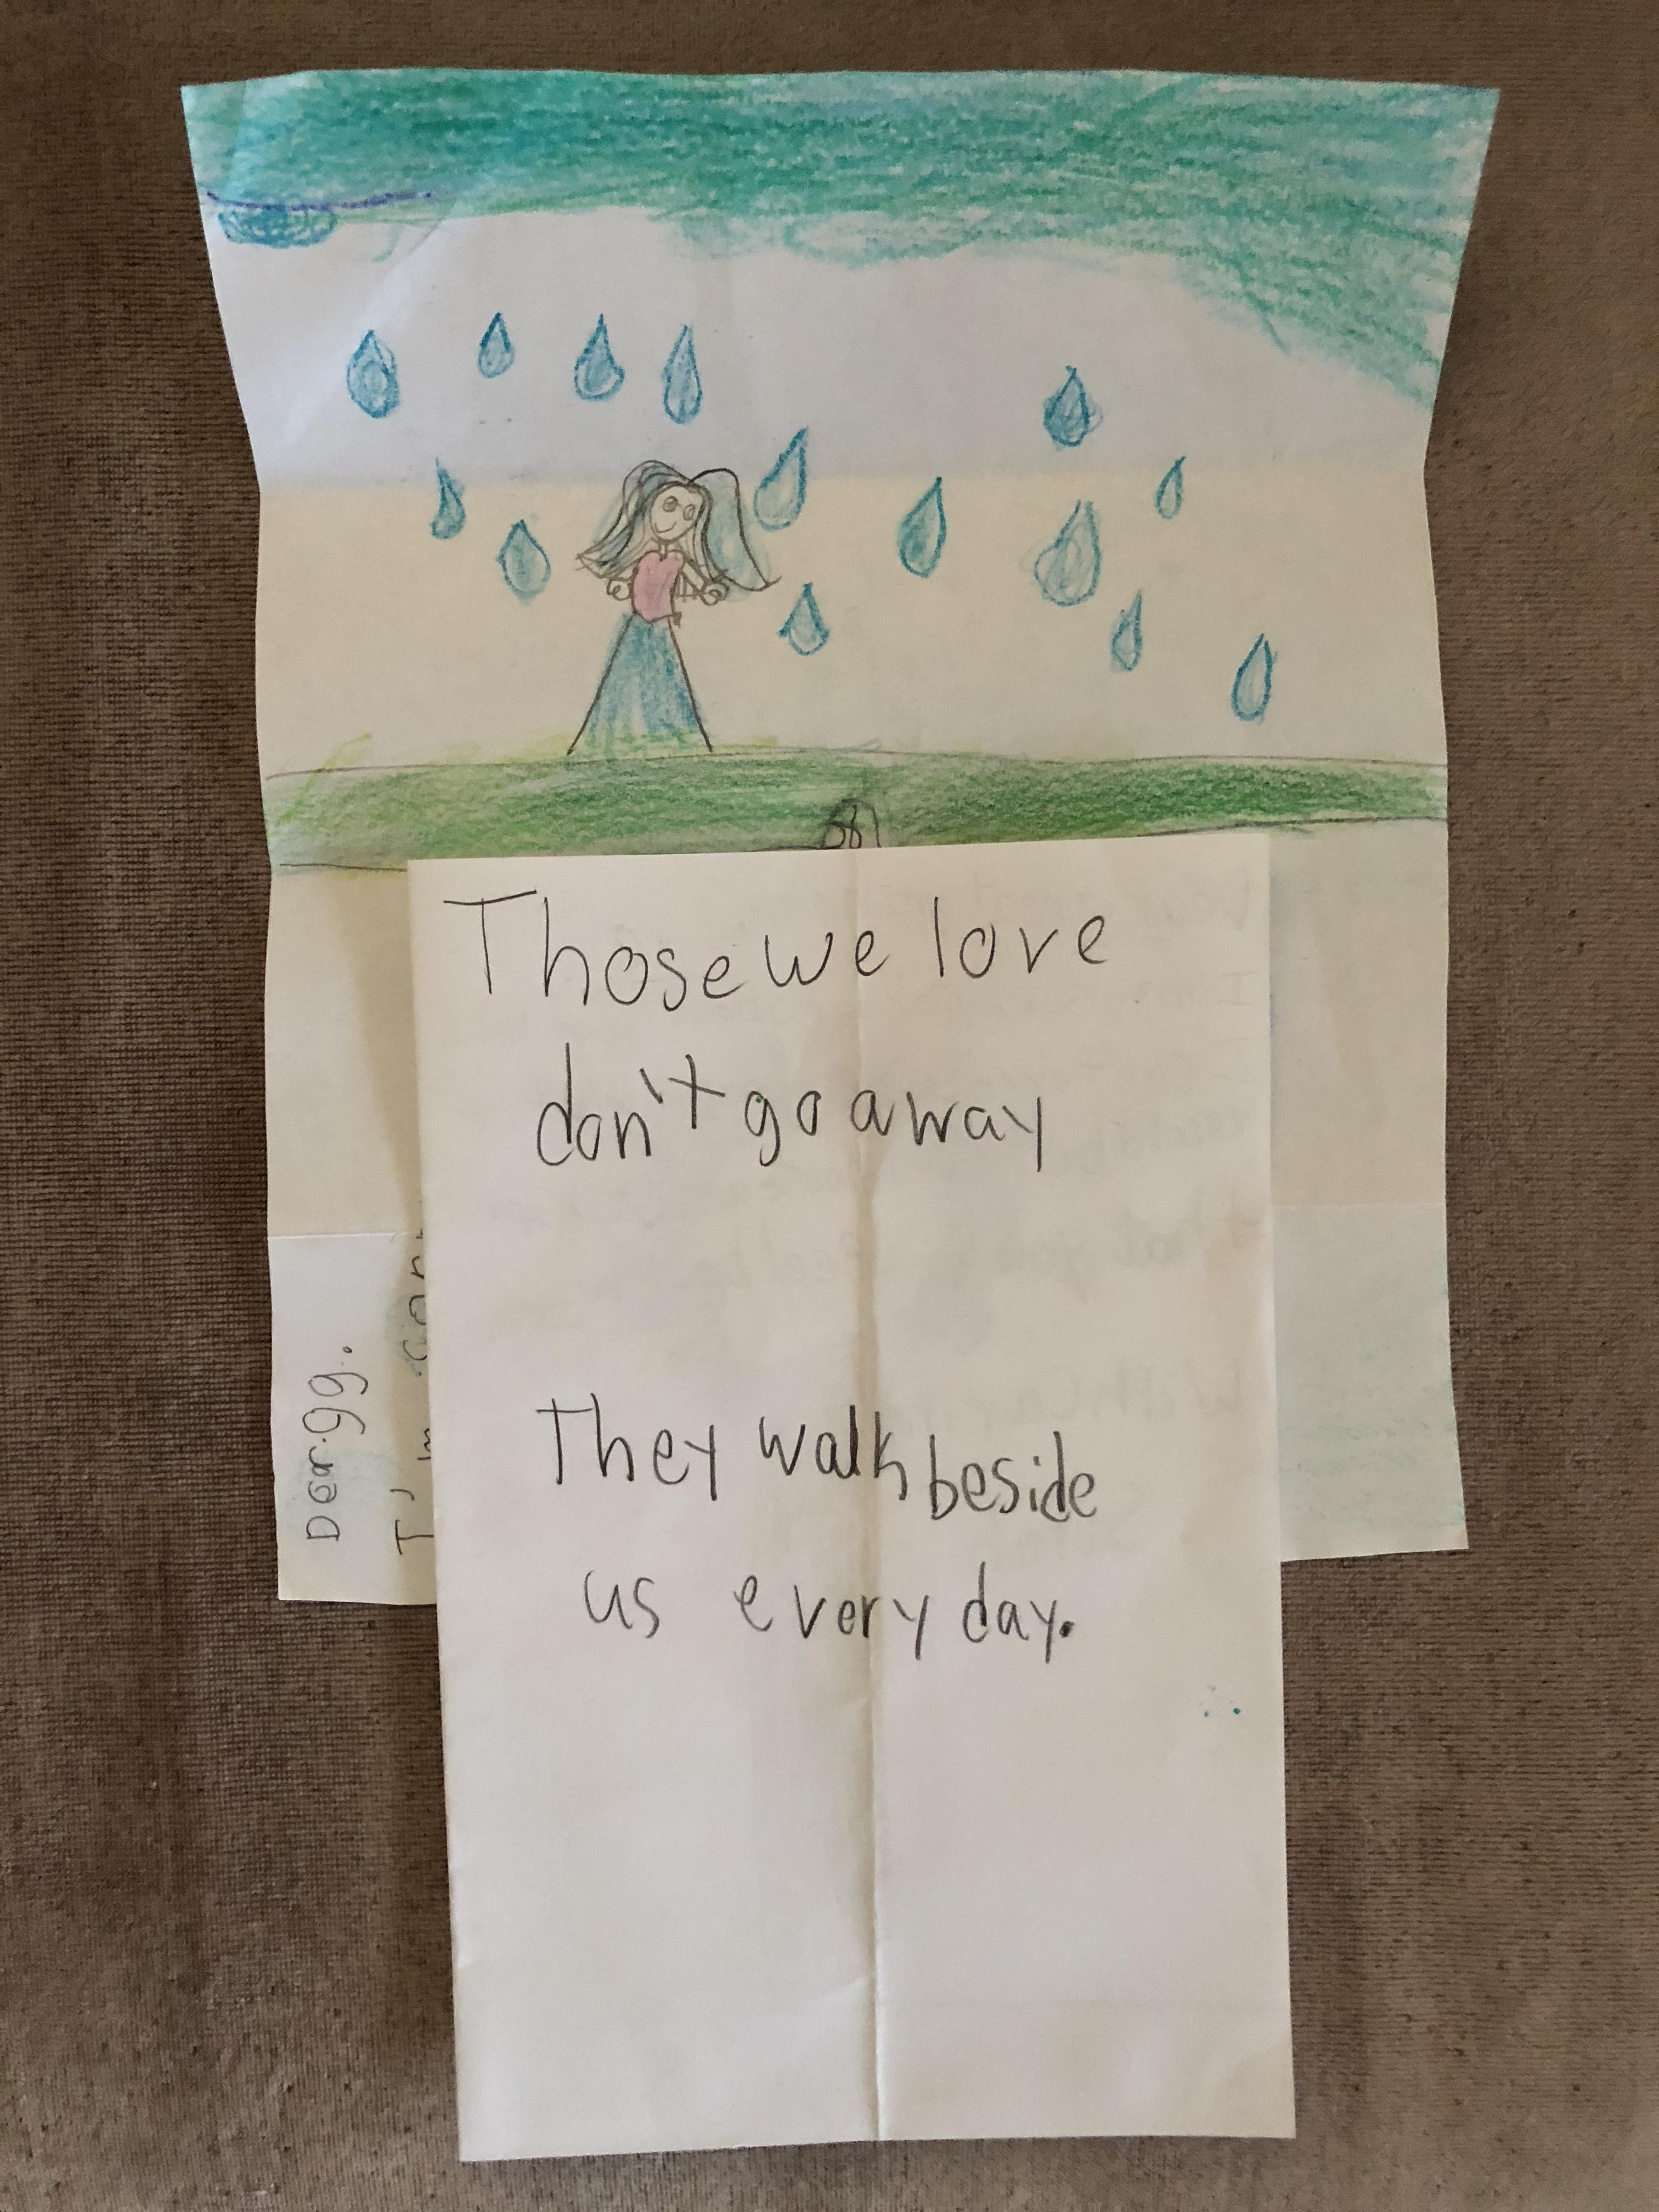 Those we love
don't go away
They walk beside
us every day.
Dear gg.